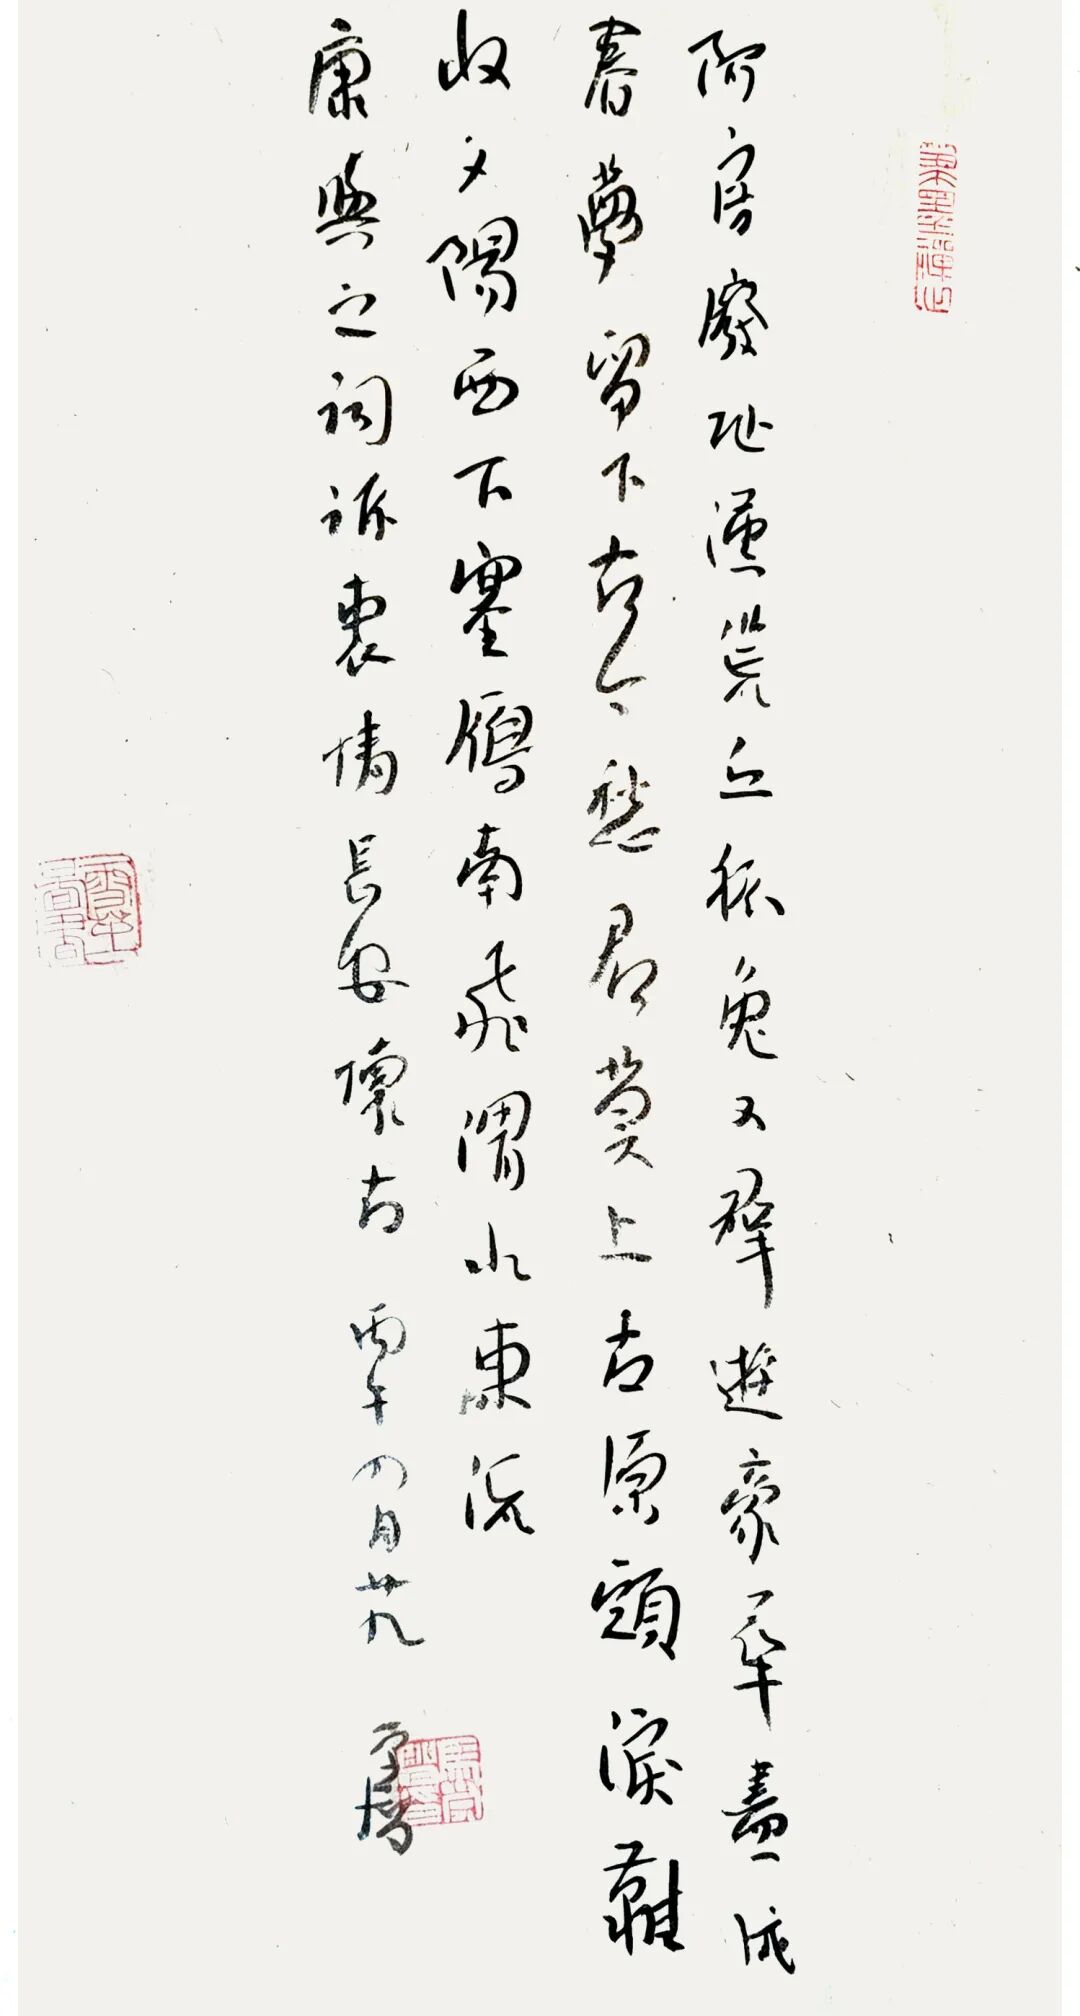 阿房廢址漢荒丘狐兔又羣遊豪華盡成
春夢留下古今愁君莫上古原頭淚難
收夕陽西下塞鴈南飛渭水東流
康與之詞訴衷情長安懷古 丙午四月廿九